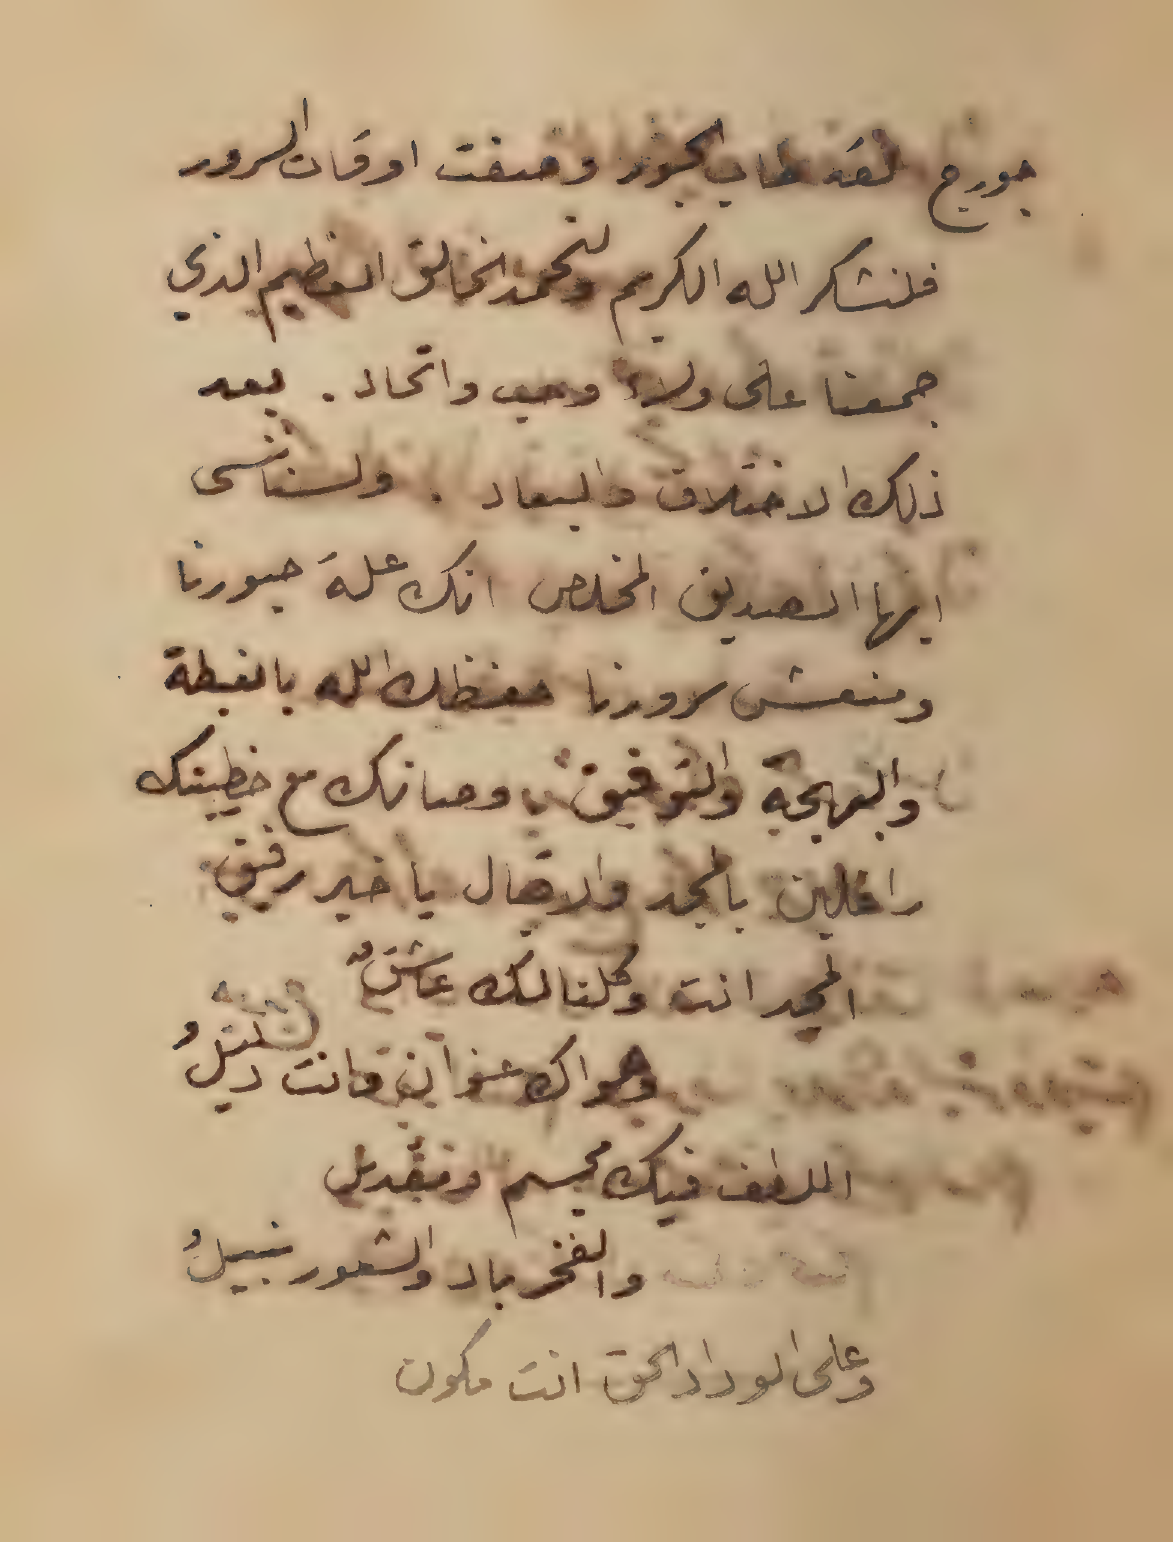 جورج لقد طاب الحبور وصفت اوقات السرور
فلنشكر الله الكريم ولنحمد الخالق العظيم الذي
جمعنا على ولاء وحب واتحاد . بعد
ذلك الاختلاف والبعاد . ولسنا ننسى
ايها الصديق المخلص انك علة حبورنا
ومنعش سرورنا حفظك الله بالغبطة
والبهجة والتوفيق وصانك مع خطيبتك
رافلين بالمجد والاقبال يا خير رفيق
المجد انت وكلنا لك عاشق
وهواك عنوان وانت دليلُ
اللطف فيك مجسم
والفخر باد والشعور نبيلُ
وعلى الوداد الحق انت مكون